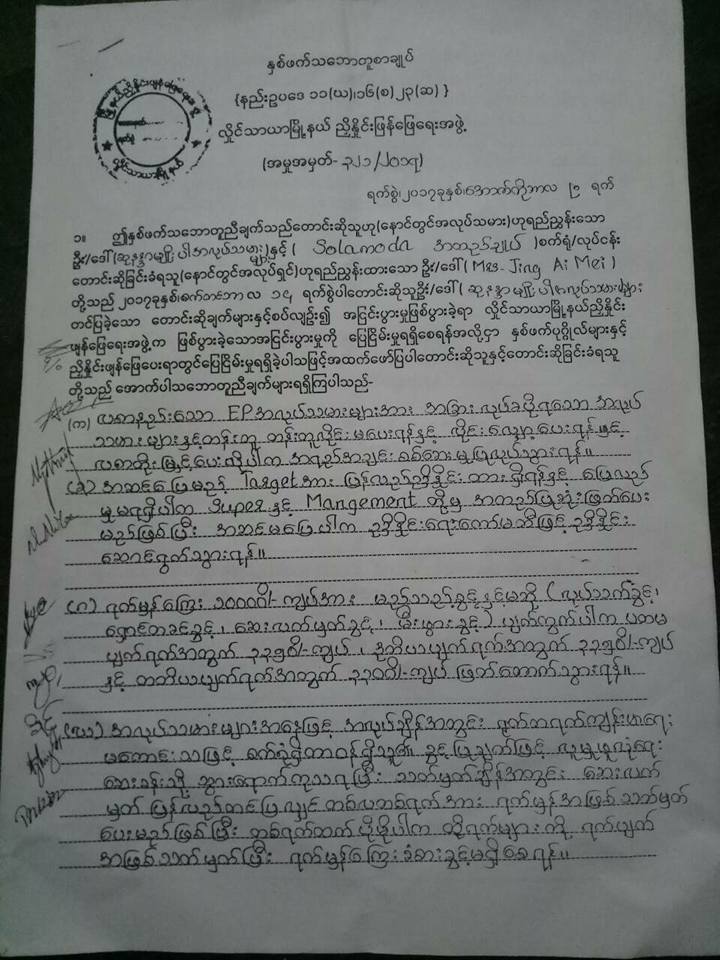 နှစ်ဖက်သဘောတူစာချုပ်
{နည်းဥပဒေ ၁၁(ဃ)၊၁၆(စ)၂၃(ဆ) }
လှိုင်သာယာမြို့နယ် ညှိနှိုင်းဖြန်ဖြေရေးအဖွဲ့
(အမှုအမှတ်- ၃၂၁/၂၀၁၇)
ရက်စွဲ၊၂၀၁၇ခုနှစ်၊အောက်တိုဘာလ ၂ ရက်
၁။ ဤနှစ်ဖက်သဘောတူညီချက်သည်တောင်းဆိုသူဟု(နောင်တွင်အလုပ်သမား)ဟုရည်ညွှန်းသော
ဦး/ဒေါ် ( ပါအလုပ်သမားများ)နှင့် ( Solamoda အထည်ချုပ် )စက်ရုံ/လုပ်ငန်း
တောင်းဆိုခြင်းခံရသူ(နောင်တွင်အလုပ်ရှင်)ဟုရည်ညွှန်းထားသော ဦး/ဒေါ် ( Mrs- Jing Ai Mei )
တို့သည် ၂၀၁၇ခုနှစ်၊စက်တင်ဘာ လ ၁၄ ရက်စွဲပါတောင်းဆိုသူဦး/ဒေါ် ( ပါအလုပ်သမားများ
တင်ပြခဲ့သော တောင်းဆိုချက်များနှင့်စပ်လျဉ်း၍ အငြင်းပွားမှုဖြစ်ပွားခဲ့ရာ လှိုင်သာယာမြို့နယ်ညှိနှိုင်း
ဖျန်ဖြေရေးအဖွဲ့က ဖြစ်ပွားခဲ့သောအငြင်းပွားမှုကို ပြေငြိမ်းမှုရရှိစေရန်အလို့ငှာ နှစ်ဖက်ပုဂ္ဂိုလ်များနှင့်
ညှိနှိုင်းဖျန်ဖြေပေးရာတွင်ပြေငြိမ်းမှုရရှိခဲ့ပါသဖြင့်အထက်ဖော်ပြပါတောင်းဆိုသူနှင့်တောင်းဆိုခြင်းခံရသူ
တို့သည် အောက်ပါသဘောတူညီချက်များရရှိကြပါသည်-
(က) လစာနည်းသော EPအလုပ်သမားများအား အခြား လုပ်ခပိုရသော အလုပ်
သမားများနှင့်တန်းတူ တန်းတူလိုင်းမပေးရန်နှင့် လိုင်းလျှော့ပေးရန်နှင့်
လစာတိုးမြှင့်ပေးလိုပါက အရည်အချင်းစစ်ဆေးမှုပြုလုပ်သွားရန်။
(ခ) အဆင်ပြေမည့် Target အား ပြန်လည်ညှိနှိုင်းထားရှိရန်နှင့် ပြေလည်
မှုမရရှိပါက Super နှင့် Mangement တို့မှ အတည်ပြုဆုံးဖြတ်ပေး
မည်ဖြစ်ပြီး အဆင်မပြေပါက ညှိနှိုင်းရေးကော်မတီဖြင့်ညှိနှိုင်း
ဆောင်ရွက်သွားရန်။
(ဂ) ရက်မှန်ကြေး ၁၀၀၀၀ိ/-ကျပ်အား မည်သည့်ခွင့်နှင့်မဆို (လုပ်သက်ခွင့်၊
ရှောင်တခင်ခွင့်၊ ဆေးလက်မှတ်ခွင့်၊ မီးဖွားခွင့်) ပျက်ကွက်ပါက ပထမ
ပျက်ရက်အတွက် ၃၃၅၀ိ/-ကျပ်၊ ဒုတိယပျက်ရက်အတွက် ၃၃၅၀ိ/-ကျပ်
နှင့် တတိယပျက်ရက်အတွက် ၃၃၀၀ိ/-ကျပ် ဖြတ်တောက်သွားရန်။
(ဃ) အလုပ်သမားများအနေဖြင့် အလုပ်ချိန်အတွင်း ရုတ်တရက်ကျန်းမာရေး
မကောင်းသဖြင့် စက်ရုံရှိတာဝန်ရှိသူ၏ ခွင့်ပြုချက်ဖြင့် လူမှုဖူလုံရေး
ဆေးခန်းသို့ သွားရောက်ကုသရပြီး သတ်မှတ်ချိန်အတွင်း ဆေးလက်
မှတ် ပြန်လည်တင်ပြလျှင် တစ်လတစ်ရက်အား ရက်မှန်အဖြစ်သတ်မှတ်
ပေးမည်ဖြစ်ပြီး တစ်ရက်ထက်ပိုမိုပါက ထိုရက်များကို ရက်ပျက်
အဖြစ်သတ်မှတ်ပြီး ရက်မှန်ကြေးခံစားခွင့်မရှိစေရန်။